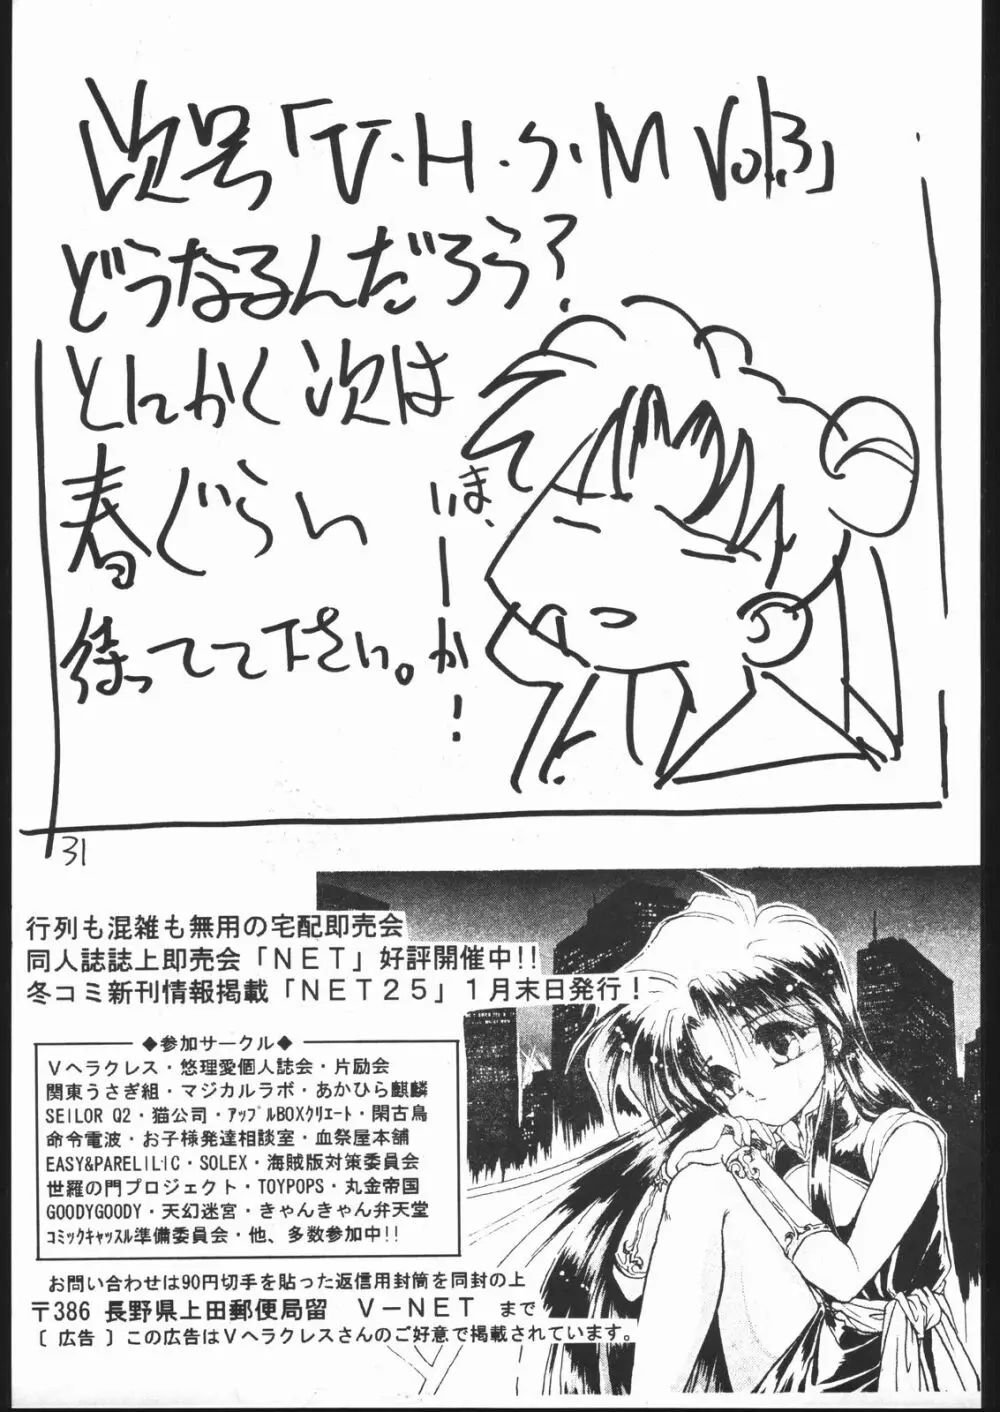 次号「V・H・S・M Vol.3」
どうなるんだろう?
とにかく次は
春ぐらい
待ってて下さい。
ま、
いーか!
31
行列も混雑も無用の宅配即売会
同人誌誌上即売会「NET」好評開催中!!
冬コミ新刊情報掲載「NET25」1月末日発行!
◆参加サークル◆
Vヘラクレス・悠理愛個人誌会・片励会
関東うさぎ組・マジカルラボ・あかひら麒麟
SEILOR Q2・猫公司・アップルBOXクリエート・閑古鳥
命令電波・お子様発達相談室・血祭屋本舗
EASY&PARELILIC・SOLEX・海賊版対策委員会
世羅の門プロジェクト・TOYPOPS・丸金帝国
GOODYGOODY・天幻迷宮・きゃんきゃん弁天堂
コミックキャッスル準備委員会・他、多数参加中!!
お問い合わせは90円切手を貼った返信用封筒を同封の上
〒386 長野県上田郵便局留 V−NET まで
〔広告〕この広告はVヘラクレスさんのご好意で掲載されています。